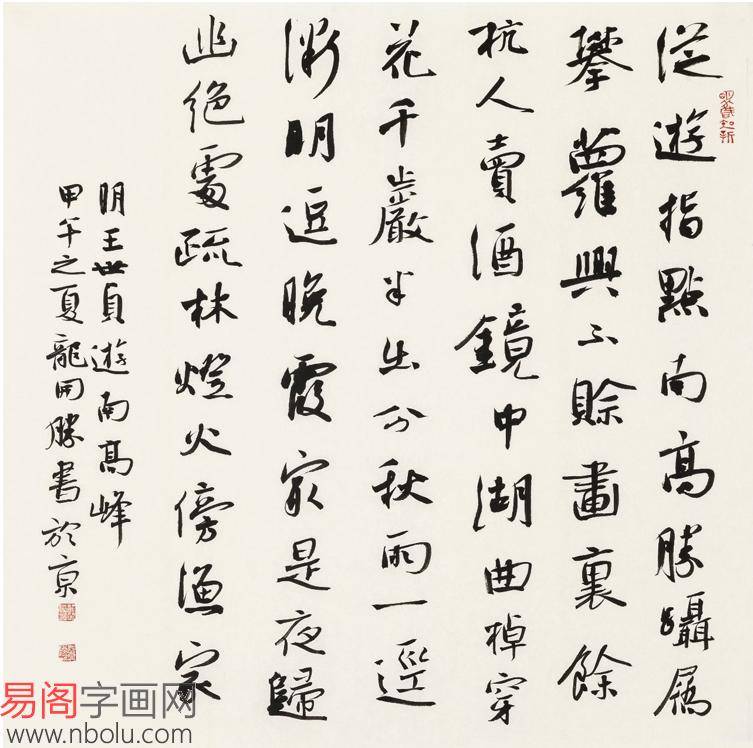 從遊指點南高勝躡屩
攀蘿興不賒畫裏餘
杭人賣酒鏡中湖曲棹穿
花千巖半出分秋雨一逕
漸明逗晚霞冣是夜歸
幽絕處疏林燈火傍漁家
明王世貞遊南高峰
甲午之夏龍開勝書於京
易阁字画网
www.nbolu.com